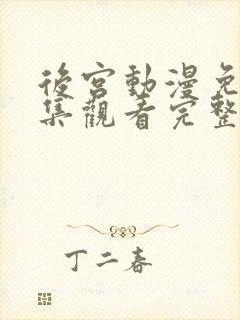 後宮動漫免
集觀看完整
丁二春